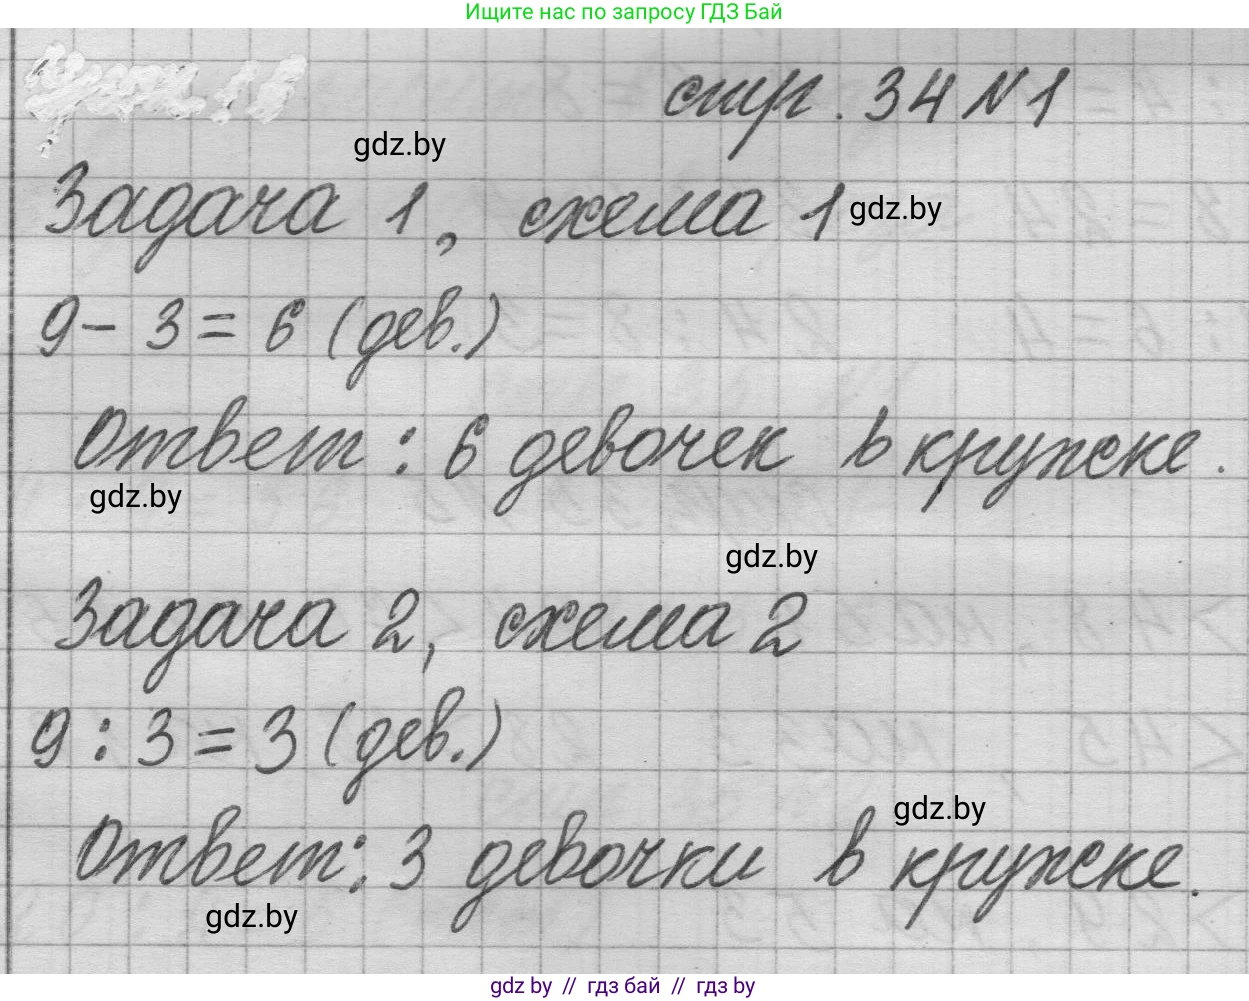 Ищите нас по запросу ГДЗ Бай
стр. 34 №1
gdz.by
Задача 1, схема 1 gdz.by
9 - 3 = 6 (дев.)
Ответ: 6 девочек в кружке.
gdz.by
gdz.by
Задача 2, схема 2
9 : 3 = 3 (дев.)
gdz.by
Ответ: 3 девочки в кружке.
gdz.by
gdz.by // гдз бай // gdz by